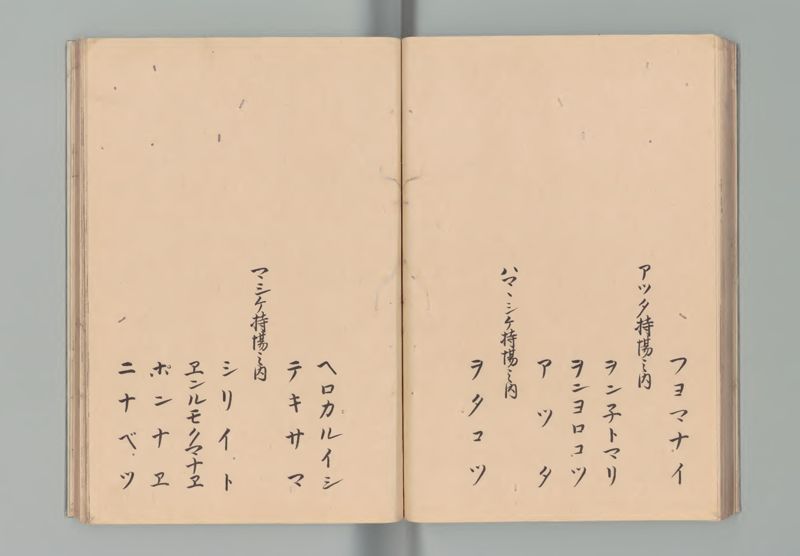 フヨマナイ
アツタ持場之内
ヲン子トマリ
ヲニヨロコツ
アツタ
ハマヽシケ持場之内
ヲタコツ
ヘロカルイシ
テキサマ
マシケ持場之内
シリイト
ヱンルモクマナヱ
ポンナヱ
ニナベツ